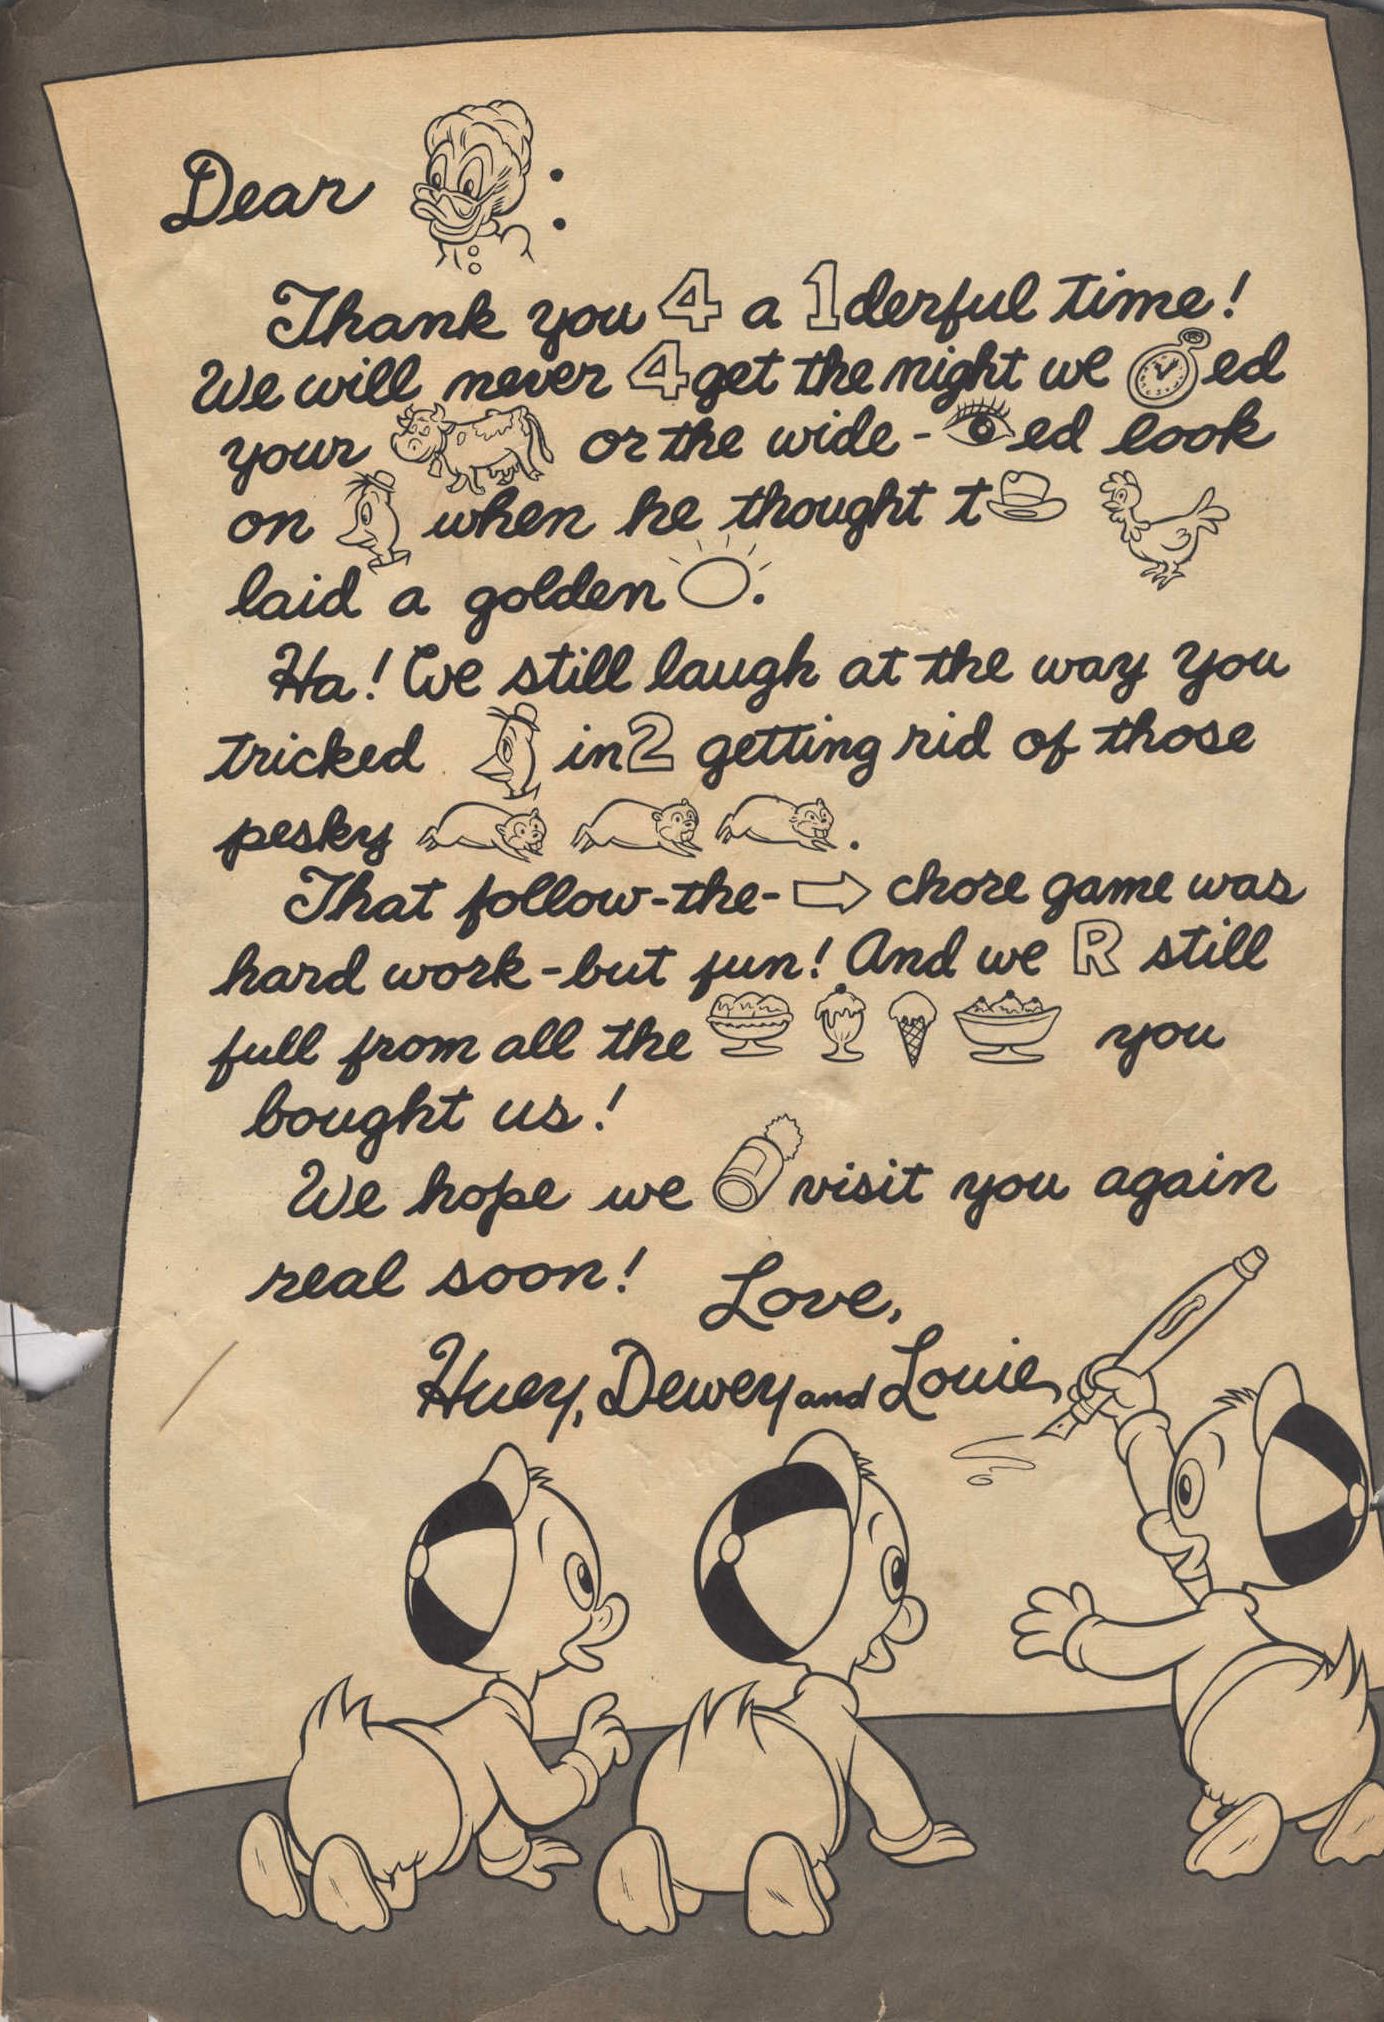 Dear :
Thank you 4 a 1derful time!
We will never 4get the night we ed
your or the wide-ed look
on when he thought t
laid a golden .
Ha! We still laugh at the way you
tricked in2 getting rid of those
pesky .
That follow-the- chore game was
hard work-but fun! And we R still
full from all the you
bought us!
We hope we visit you again
real soon!
Love,
Huey, Dewey and Louie